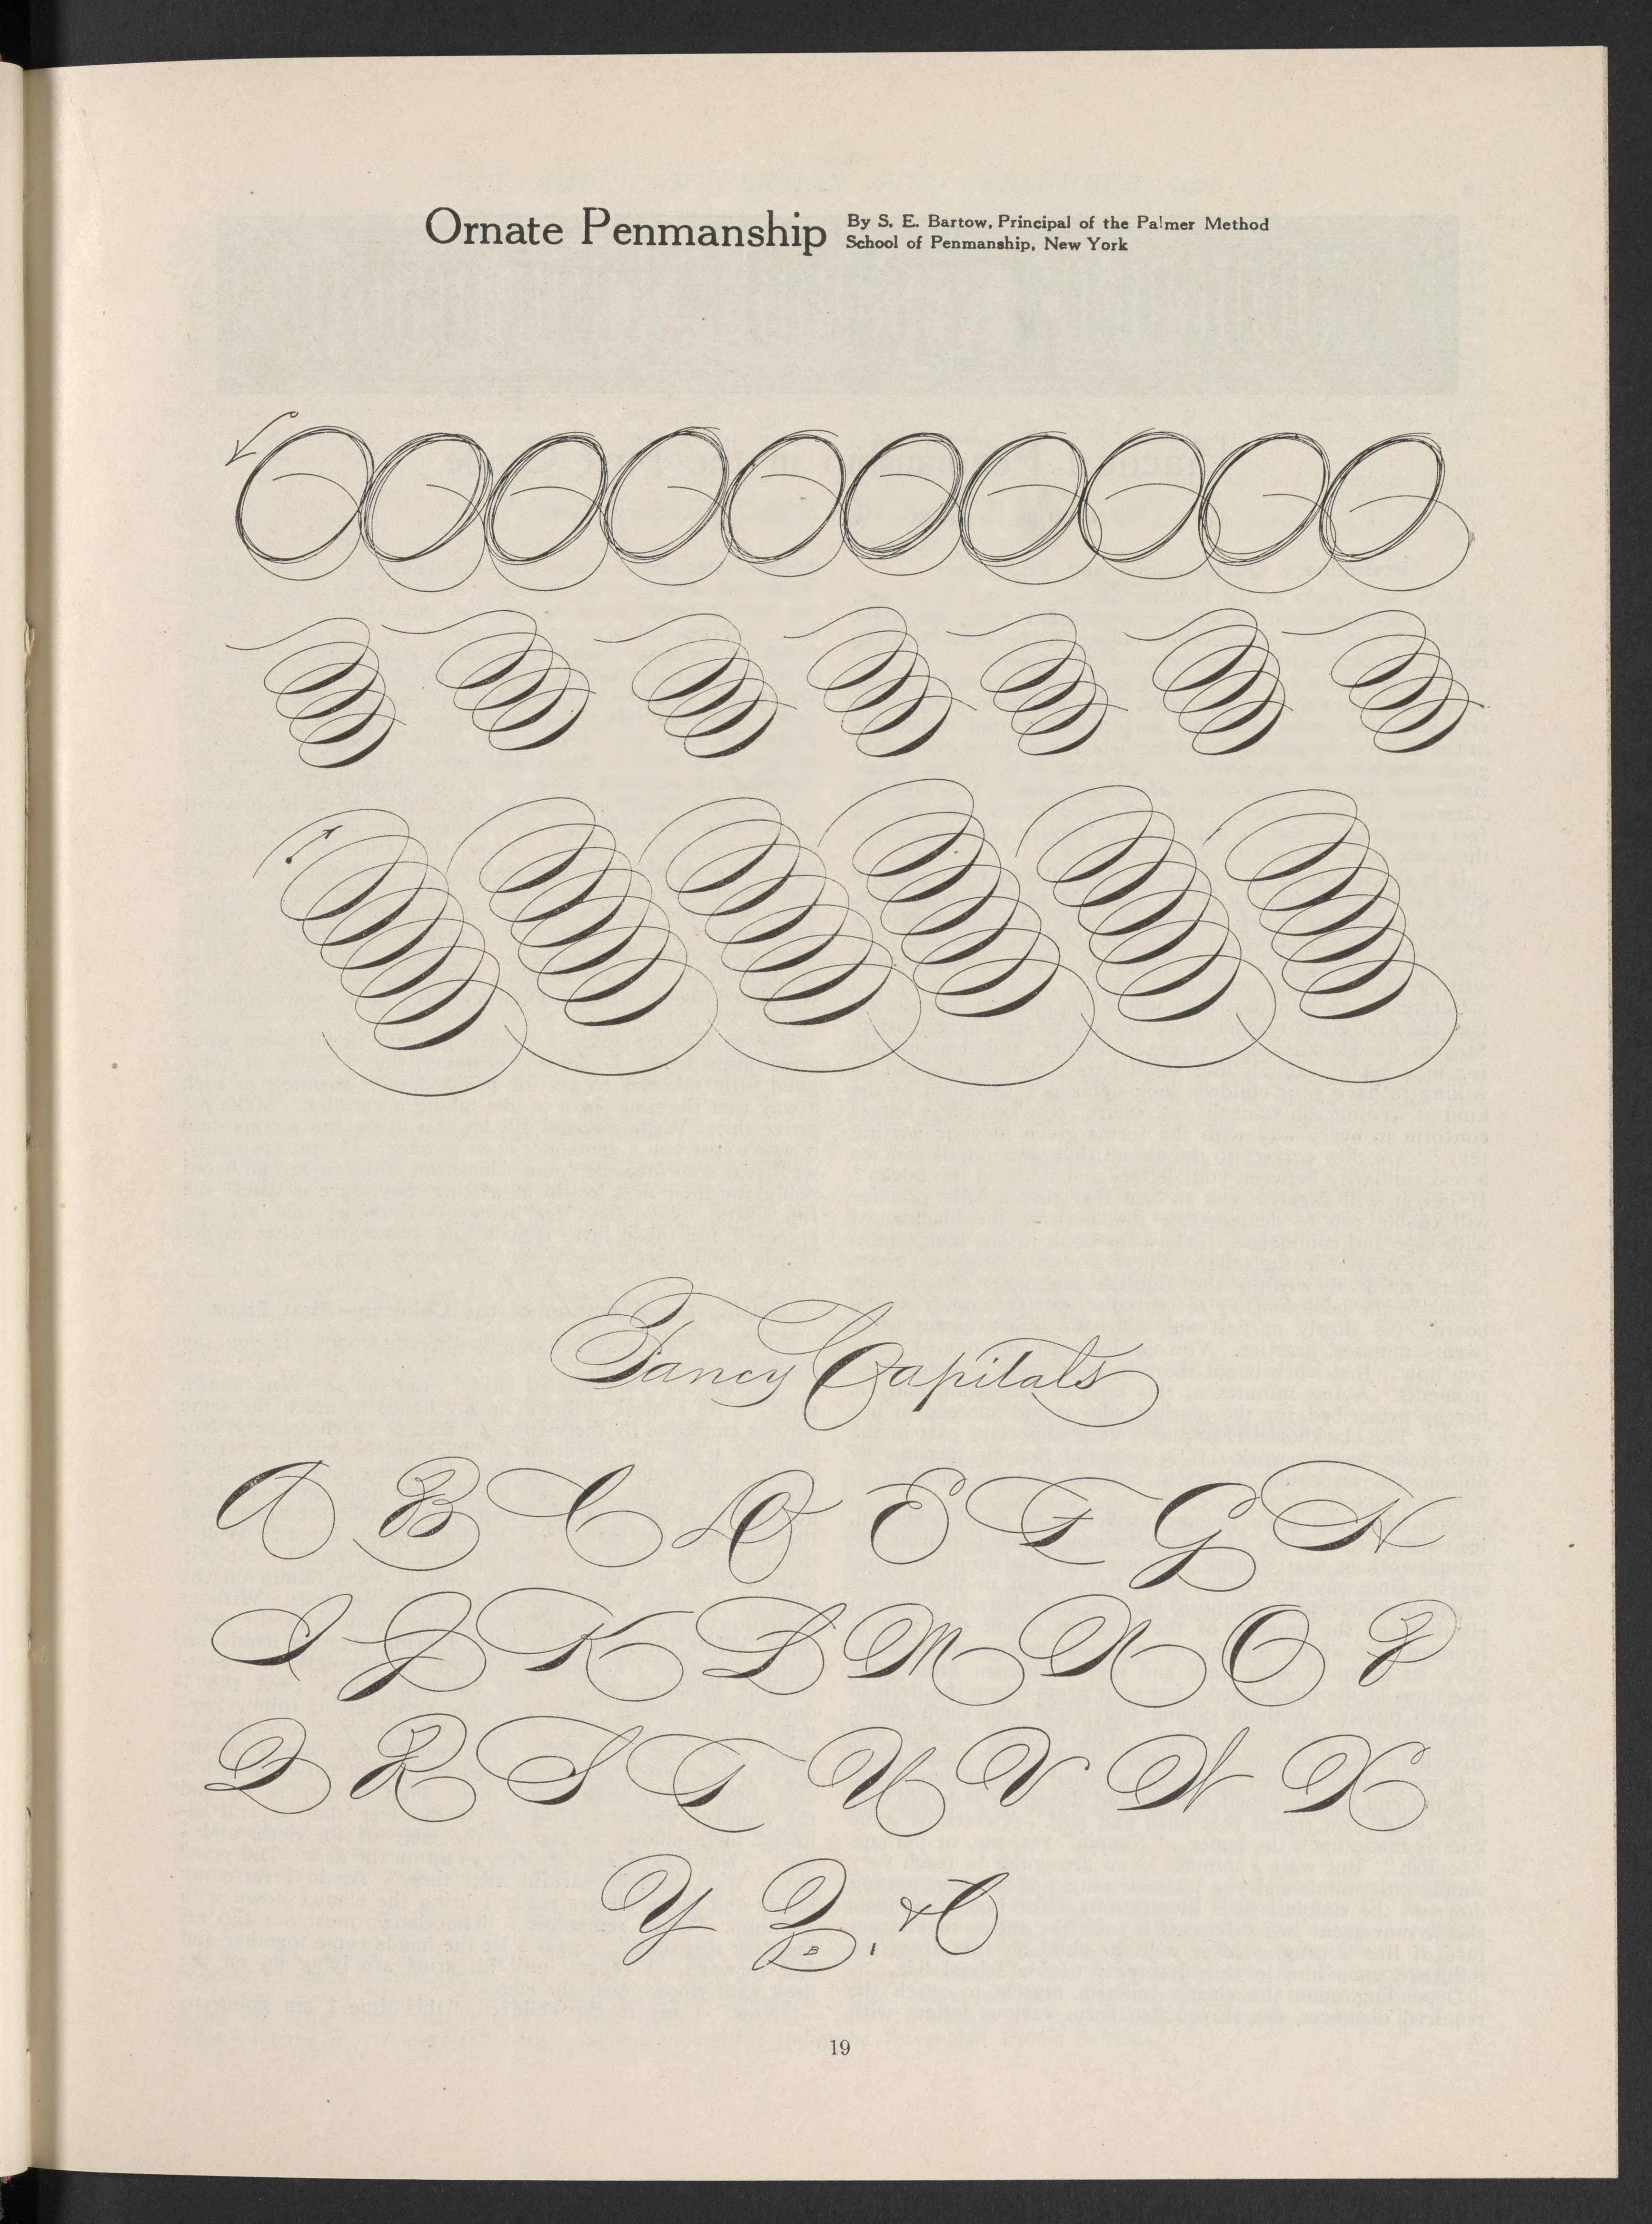 Ornate Penmanship By S. E. Bartow, Principal of the Palmer Method
School of Penmanship, New York
Fancy Capitals
A B C D E F G H
I J K L M N O P
Q R S T U V W X
Y Z. & C
B
19